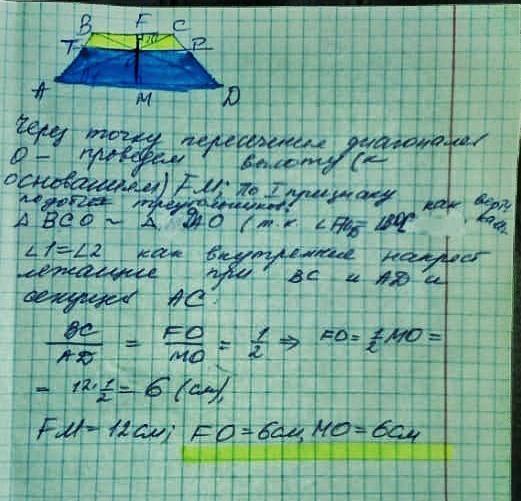 B F C
T O P
A M D
Через точку пересечения диагоналей
O – проведем высоту (к
основаниям) FM. По I признаку
подобия треугольников
Δ BCO ~ Δ DAO (т.к. ∠ как верт
∠1=∠2 как внутренние накрест
лежащие при BC и AD и
секущей AC.
BC/AD = FO/MO = 1/2 ⇒ FO = 1/2 MO =
= 12·1/2 = 6 (см),
FM = 12см; FO = 6см, MO = 6см